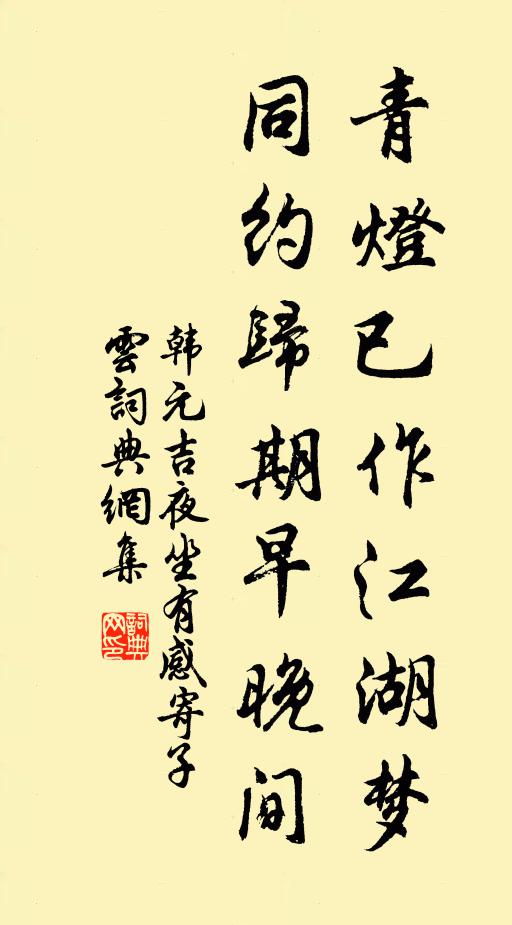 青燈已作江湖梦
同约歸期早晚间
韩元吉夜坐有感寄子
雲詞典網集
詞典网印